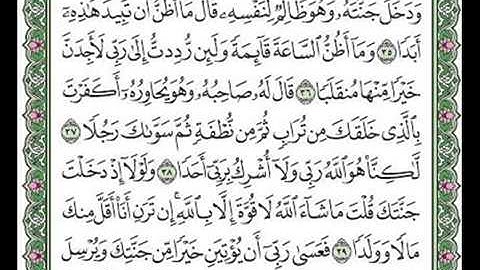 وَدَخَلَ جَنَّتَهُۥ وَهُوَ ظَالِمٌ لِّنَفْسِهِۦ قَالَ مَآ أَظُنُّ أَن تَبِيدَ هَٰذِهِۦٓ
أَبَدًا ٣٥ وَمَآ أَظُنُّ ٱلسَّاعَةَ قَآئِمَةً وَلَئِن رُّدِدتُّ إِلَىٰ رَبِّى لَأَجِدَنَّ
خَيْرًا مِّنْهَا مُنقَلَبًا ٣٦ قَالَ لَهُۥ صَاحِبُهُۥ وَهُوَ يُحَاوِرُهُۥٓ أَكَفَرْتَ
بِٱلَّذِى خَلَقَكَ مِن تُرَابٍ ثُمَّ مِن نُّطْفَةٍ ثُمَّ سَوَّىٰكَ رَجُلًا ٣٧
لَّٰكِنَّا۠ هُوَ ٱللَّهُ رَبِّى وَلَآ أُشْرِكُ بِرَبِّىٓ أَحَدًا ٣٨ وَلَوْلَآ إِذْ دَخَلْتَ
جَنَّتَكَ قُلْتَ مَا شَآءَ ٱللَّهُ لَا قُوَّةَ إِلَّا بِٱللَّهِ ۚ إِن تَرَنِ أَنَا۠ أَقَلَّ مِنكَ
مَالًا وَوَلَدًا ٣٩ فَعَسَىٰ رَبِّىٓ أَن يُؤْتِيَنِ خَيْرًا مِّن جَنَّتِكَ وَيُرْسِلَ